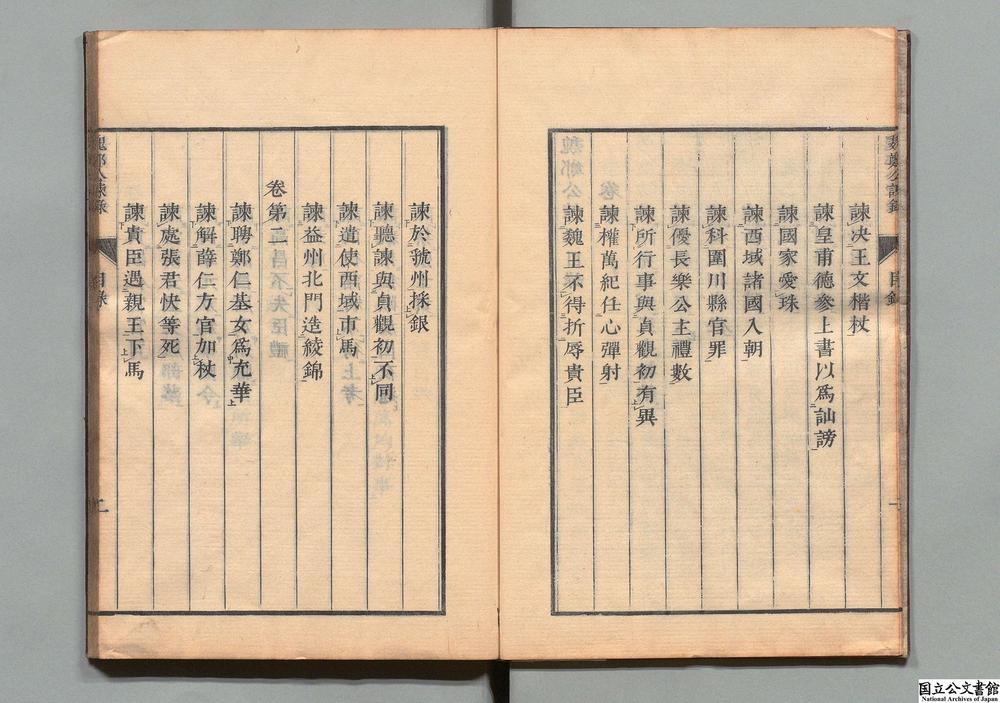 諫决王文楷杖
諫皇甫德參上書以爲訕謗
諫國家愛珠
諫西域諸國入朝
諫科圍川縣官罪
諫優長樂公主禮數
諫所行事與貞觀初有異
諫權萬紀任心彈射
諫魏王不得折辱貴臣
諫於虢州採銀
諫聽諫與貞觀初不同
諫遣使西域市馬
諫益州北門造綾錦
卷第二
諫聘鄭仁基女爲充華
諫解薛仁方官加杖
諫處張君快等死
諫貴臣遇親王下馬
目錄
二
国立公文書館
National Archives of Japan